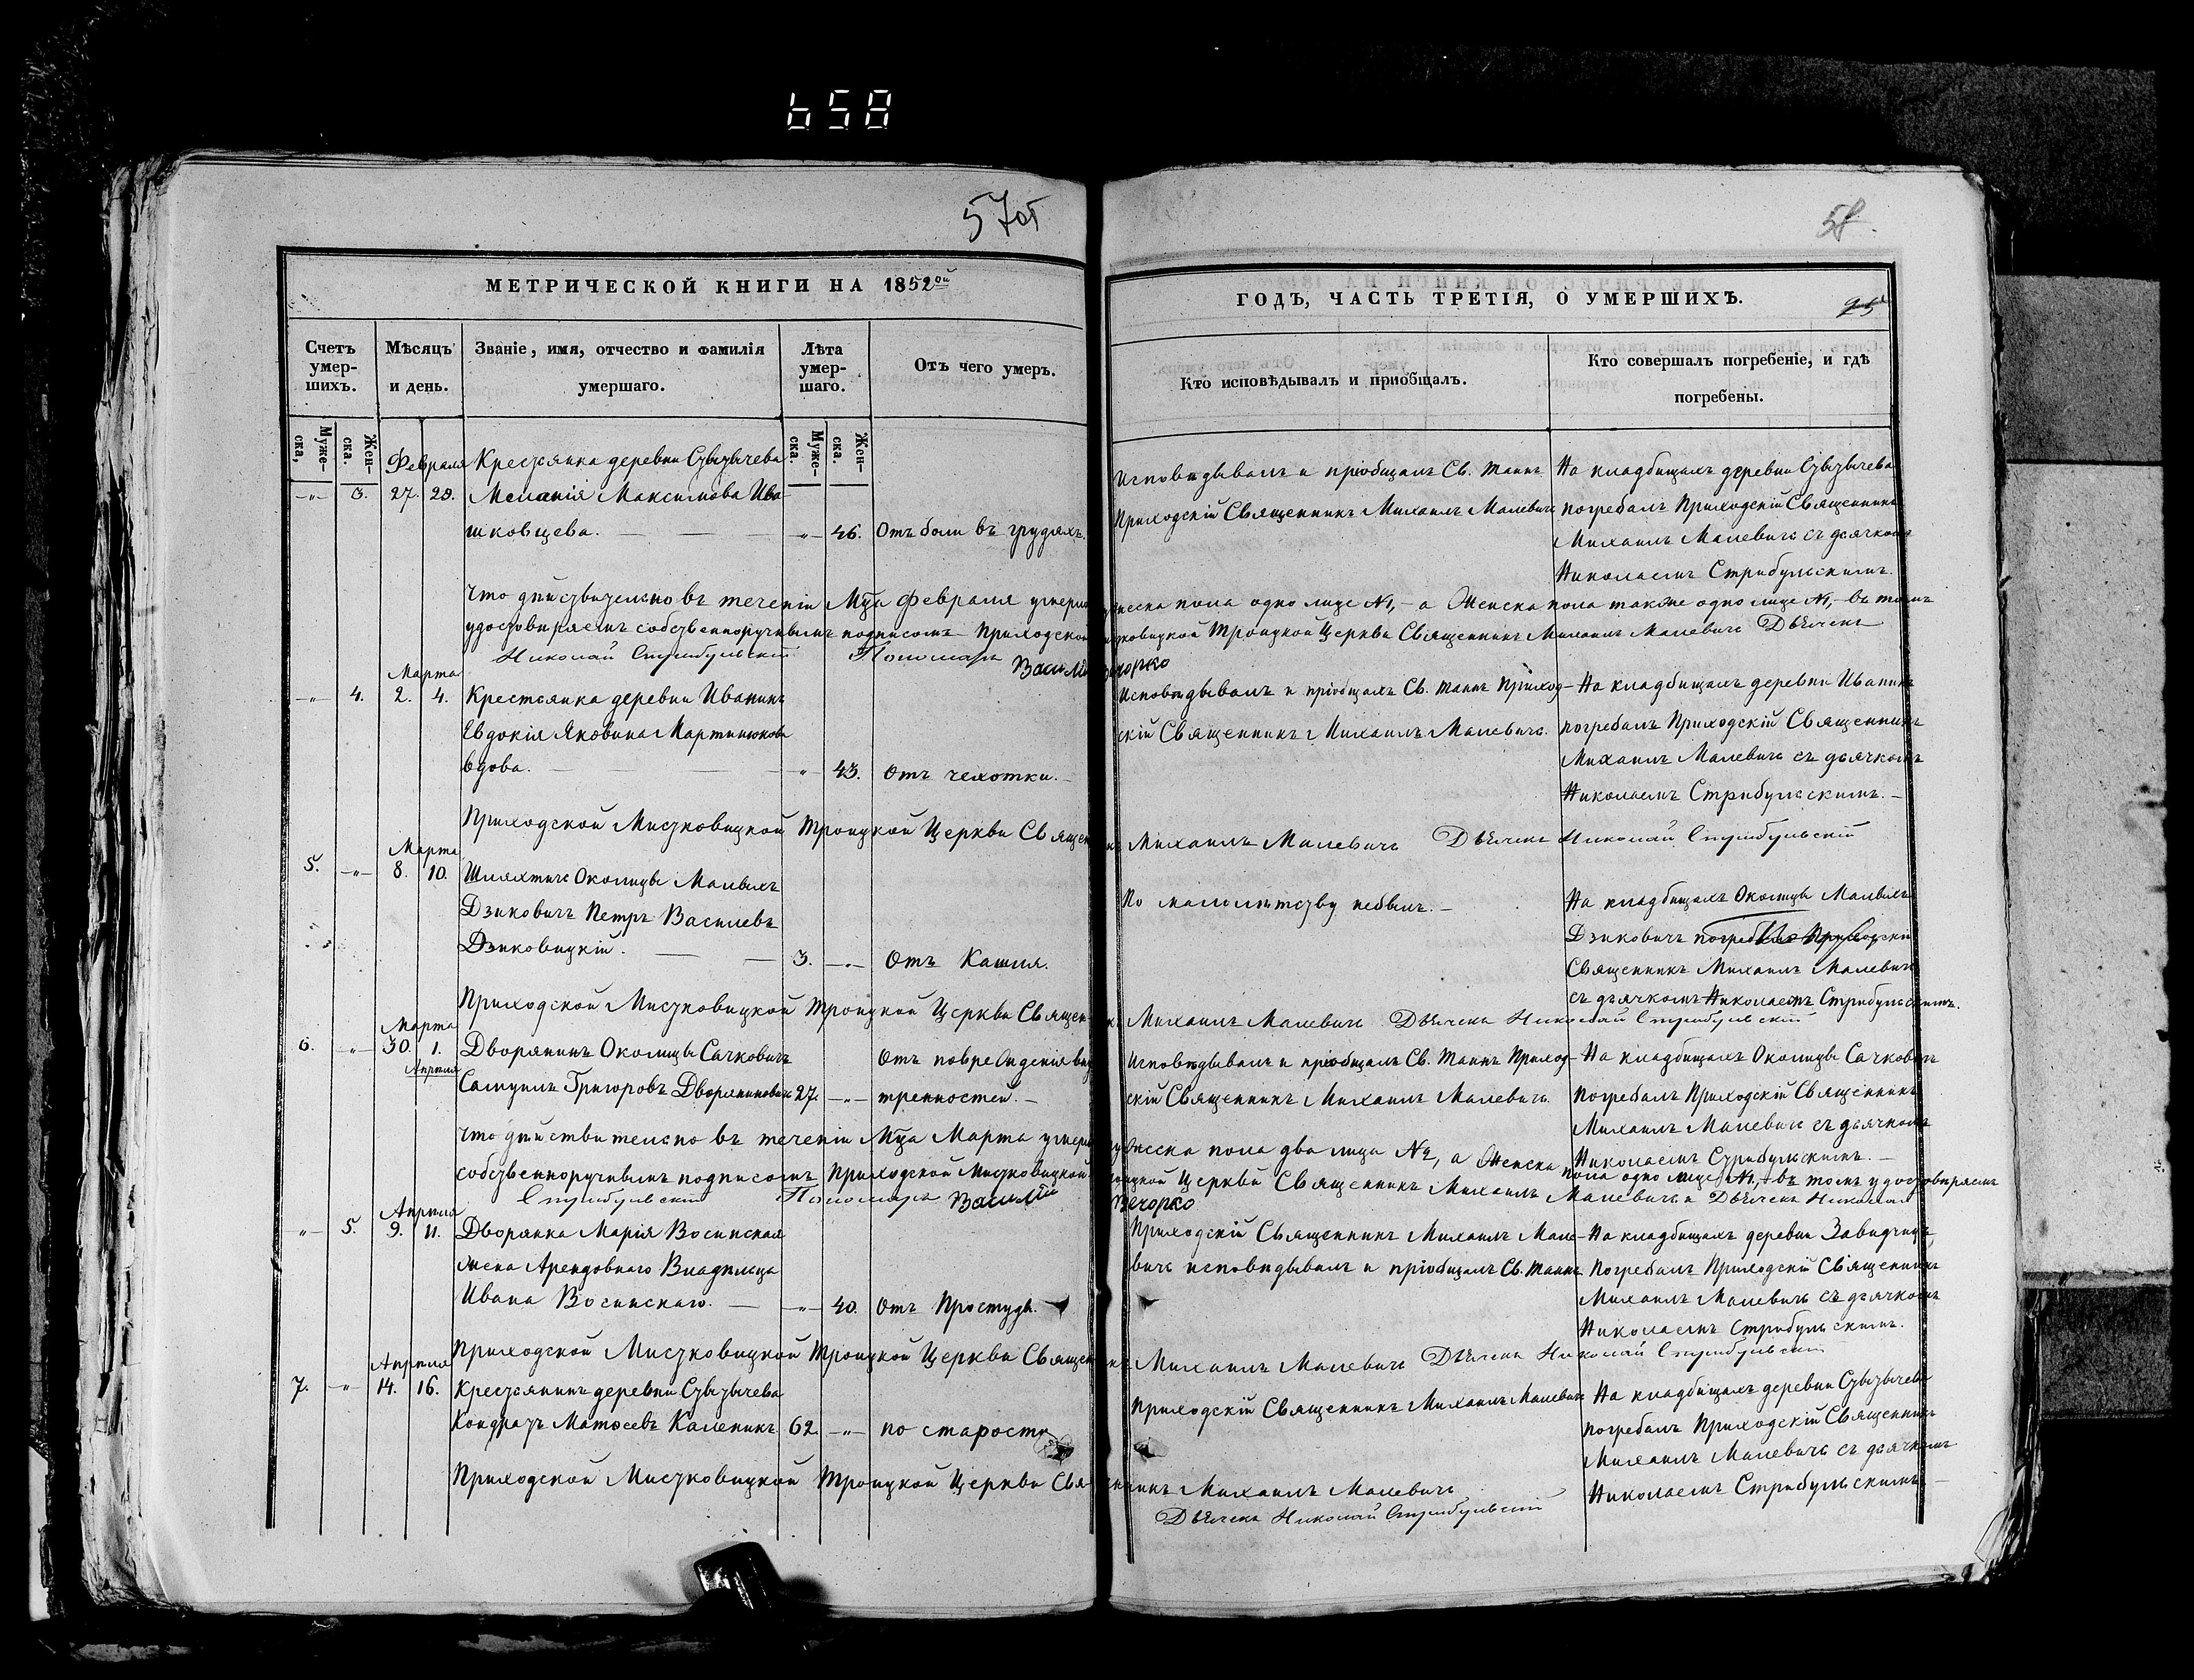 658
57об
58.
МЕТРИЧЕСКОЙ КНИГИ НА 1852ой
ГОДЪ, ЧАСТЬ ТРЕТІЯ, О УМЕРШИХЪ.
Счетъ умер-шихъ.
Мѣсяцъ и день.
Званіе, имя, отчество и фамилія умершаго.
Лѣта умер-шаго.
Отъ чего умеръ.
Кто исповѣдывалъ и пріобщалъ.
Кто совершалъ погребеніе, и гдѣ погребены.
Муже-ска,
Жен-ска.
Муже-ска.
Жен-ска.
Февраля Крестянка деревни Стытычева
-„- 3. 27. 28. Меланія Максимова Ива
шковцева. -„- 46. Отъ боли въ грудяхъ.
Исповѣдывалъ и пріобщалъ Св. Таинъ
Приходскій Священникъ Михаилъ Малевичъ
На кладбищахъ деревни Стытычева
погребалъ Приходскій Священникъ
Михаилъ Малевичъ съ дьячкомъ
Николаемъ Стрибульскимъ.
Что дѣйствительно въ теченіи Мца Февраля умерло мужеска пола одно лице №1,- а Женска пола также одно лице №1,- въ томъ
удостовѣряемъ собственноручнымъ подписомъ Приходской Мистковицкой Троицкой Церкви Священникъ Михаилъ Малевичъ Дьячекъ
Николай Стрибульскій Пономарь Василій Вечорко
Марта
-„- 4. 2. 4. Крестьянка деревни Иваникъ
Евдокія Яковина Мартинюкова
вдова. „ 43. отъ чехотки.
Исповѣдывалъ и пріобщалъ Св. Таинъ Приход-
скій Священникъ Михаилъ Малевичъ.
На кладбищахъ деревни Иваникъ
погребалъ Приходскій Священникъ
Михаилъ Малевичъ съ дьячкомъ
Николаемъ Стрибульскимъ.
Приходской Мистковицкой Троицкой Церкви Священникъ Михаилъ Малевичъ Дьячекъ Николай Стрибульскій
Марта
5. -„- 8. 10. Шляхтичъ Околицы Малыхъ
Дзиковичъ Петръ Василевъ
Дзиковицкій. 3. -„- Отъ Кашля.
По малолѣтству небылъ.
На кладбищахъ Околицы Малыхъ
Дзиковичъ погребалъ Приходскій
Священникъ Михаилъ Малевичъ
съ дьячкомъ Николаемъ Стрибульскимъ.
Приходской Мистковицкой Троицкой Церкви Священникъ Михаилъ Малевичъ Дьячекъ Николай Стрибульскій
Марта
6. -„- 30. 1. Дворянинъ Околицы Сачковичъ
Апрѣля
Самуилъ Григоровъ Дворяниновичъ 27. -„-
Отъ поврежденія внутренностей.
Исповѣдывалъ и пріобщалъ Св. Таинъ Приход-
скій Священникъ Михаилъ Малевичъ.
На кладбищахъ Околицы Сачковичъ
Погребалъ Приходскій Священникъ
Михаилъ Малевичъ съ дьячкомъ
Николаемъ Стрибульскимъ.
Что дѣйствительно въ теченіи Мца Марта умерло мужеска пола два лица №2, а Женска пола одно лице №1,- въ томъ удостовѣряемъ
собственноручнымъ подписомъ Приходской Мистковицкой Троицкой Церкви Священникъ Михаилъ Малевичъ Дьячекъ Николай
Стрибульскій Пономарь Василій Вечорко
Апрѣля
-„- 5. 9. 11. Дворянка Марія Восинская
жена Арендовнаго Владѣльца
Ивана Восинскаго. -„- 40. отъ Простуды.
Приходскій Священникъ Михаилъ Мале-
вичъ исповѣдывалъ и пріобщалъ Св. Таинъ
На кладбищахъ деревни Завидчичъ,
Погребалъ Приходскій Священникъ
Михаилъ Малевичъ съ дьячкомъ
Николаемъ Стрибульскимъ.
Приходской Мистковицкой Троицкой Церкви Священникъ Михаилъ Малевичъ Дьячекъ Николай Стрибульскій
Апрѣля
7. -„- 14. 16. Крестянинъ деревни Стытычева
Кондратъ Матѳеевъ Каленикъ 62. -„- по старости
Приходскій Священникъ Михаилъ Малевичъ
На кладбищахъ деревни Стытычева
погребалъ Приходскій Священникъ
Михаилъ Малевичъ съ дьячкомъ
Николаемъ Стрибульскимъ.
Приходской Мистковицкой Троицкой Церкви Священникъ Михаилъ Малевичъ
Дьячекъ Николай Стрибульскій